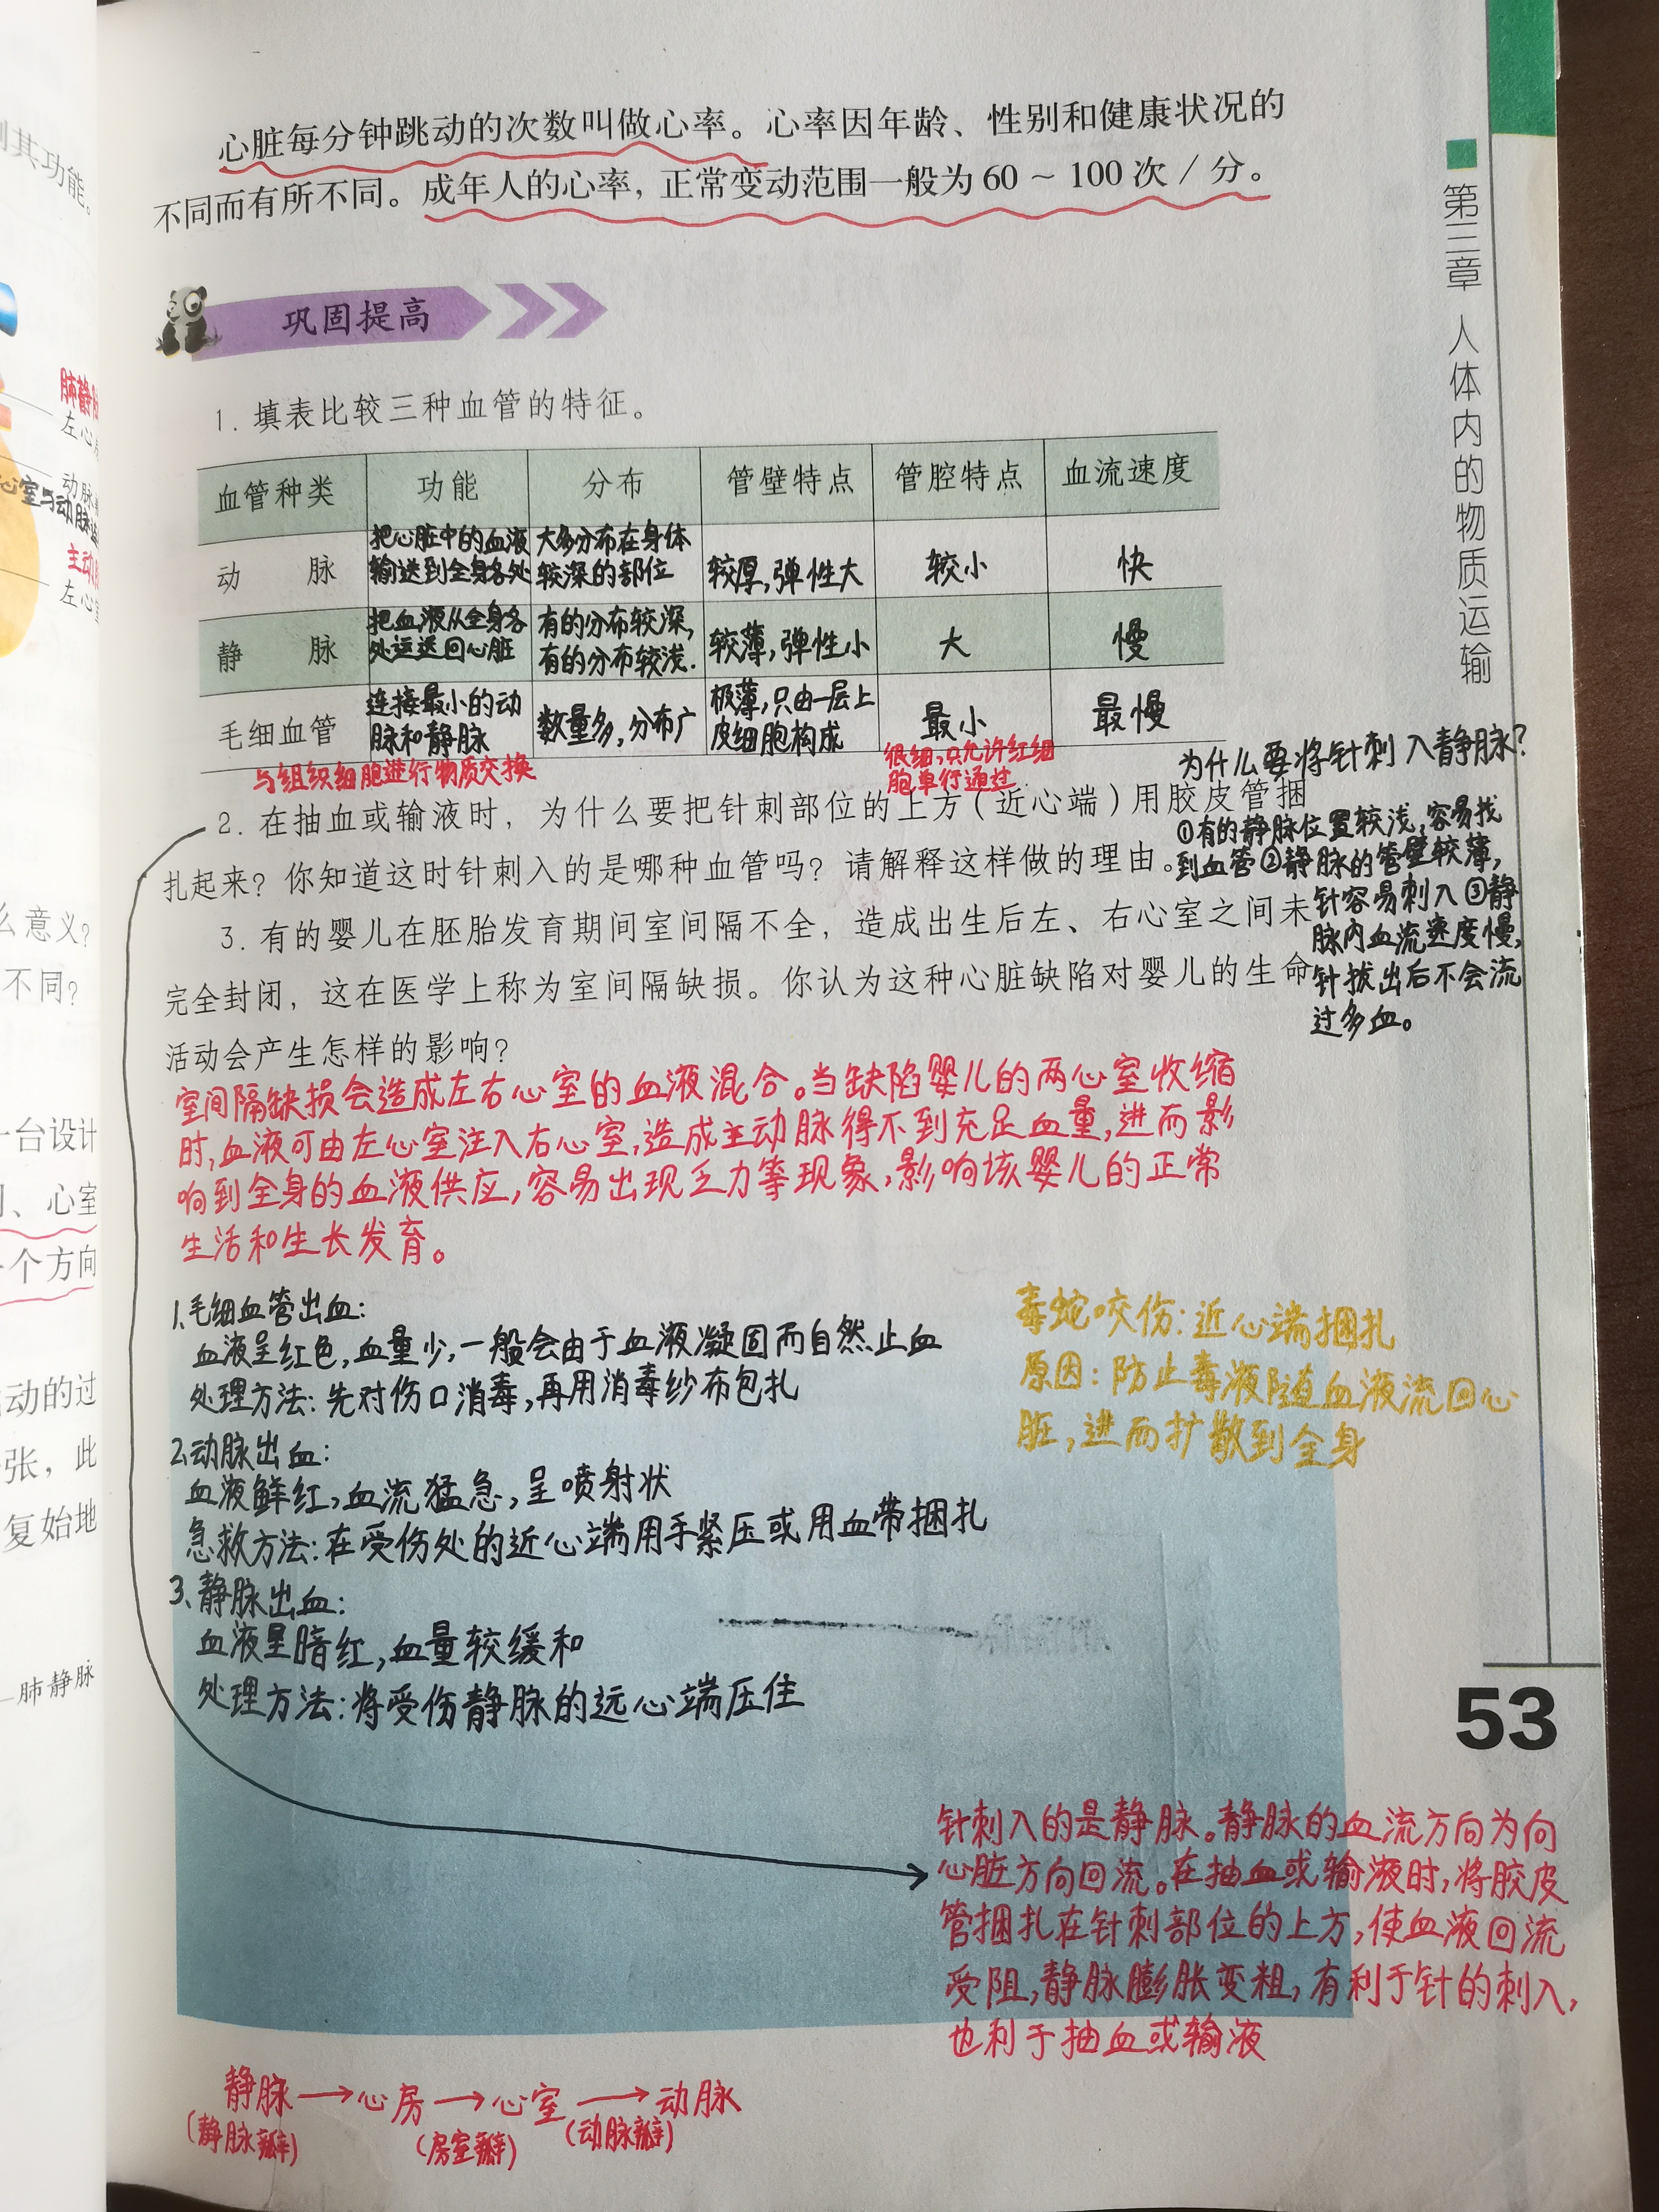 心脏每分钟跳动的次数叫做心率。心率因年龄、性别和健康状况的
不同而有所不同。成年人的心率，正常变动范围一般为 60 ~ 100 次 / 分。
巩固提高
1. 填表比较三种血管的特征。
血管种类 功能 分布 管壁特点 管腔特点 血流速度
动脉 把心脏中的血液输送到全身各处 大多分布在身体较深的部位 较厚,弹性大 较小 快
静脉 把血液从全身各处运送回心脏 有的分布较深,有的分布较浅. 较薄,弹性小 大 慢
毛细血管 连接最小的动脉和静脉 数量多,分布广 极薄,只由一层上皮细胞构成 最小 最慢
与组织细胞进行物质交换
很细,只允许红细
胞单行通过
2. 在抽血或输液时，为什么要把针刺部位的上方（近心端）用胶皮管捆
扎起来？你知道这时针刺入的是哪种血管吗？请解释这样做的理由。
3. 有的婴儿在胚胎发育期间室间隔不全，造成出生后左、右心室之间未
完全封闭，这在医学上称为室间隔缺损。你认为这种心脏缺陷对婴儿的生命
活动会产生怎样的影响？
为什么要将针刺入静脉?
①有的静脉位置较浅,容易找
到血管②静脉的管壁较薄,
针容易刺入③静
脉内血流速度慢,
针拔出后不会流
过多血。
室间隔缺损会造成左右心室的血液混合。当缺陷婴儿的两心室收缩
时,血液可由左心室注入右心室,造成主动脉得不到充足血量,进而影
响到全身的血液供应,容易出现乏力等现象,影响该婴儿的正常
生活和生长发育。
1.毛细血管出血:
血液呈红色,血量少,一般会由于血液凝固而自然止血
处理方法:先对伤口消毒,再用消毒纱布包扎
2.动脉出血:
血液鲜红,血流猛急,呈喷射状
急救方法:在受伤处的近心端用手紧压或用血带捆扎
3、静脉出血:
血液呈暗红,血量较缓和
处理方法:将受伤静脉的远心端压住
毒蛇咬伤:近心端捆扎
原因:防止毒液随血液流回心
脏,进而扩散到全身
针刺入的是静脉。静脉的血流方向为向
心脏方向回流。在抽血或输液时,将胶皮
管捆扎在针刺部位的上方,使血液回流
受阻,静脉膨胀变粗,有利于针的刺入,
也利于抽血或输液
静脉→心房→心室→动脉
(静脉瓣) (房室瓣) (动脉瓣)
第三章 人体内的物质运输
53
则其功能。
肺静脉
左心房
动脉瓣
主动脉
左心室
么意义?
不同?
一台设计
、心室
一个方向
动的过
张，此
复始地
肺静脉